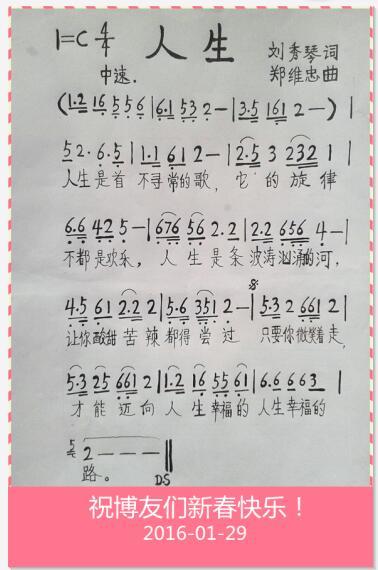 1=C 4/4 人生 刘秀琴词
中速. 郑维忠曲
(1.2 16 5 5 6 | 6.1 53 2 - | 3.5 161 2 - )
5 2 . 6.5 | 1.1 612 - | 2.5 3 232 1 |
人生是首 不寻常的歌, 它的旋律
6.6 42 5 - | 676 56 2.2 | 2.2 656 4 - |
不都是欢乐, 人生是条波涛汹涌的河,
4.5 61 2.2 2 | 5.6 351 2 - | 5.3 2 661 2 |
让你酸甜苦辣都得尝过 只要你微笑着走,
5.3 25 661 2 | 1.2 16 55 61 | 6.6 663 |
才能迈向人生幸福的人生幸福的
5 2 - - - ||
路。 D.S
祝博友们新春快乐！
2016-01-29